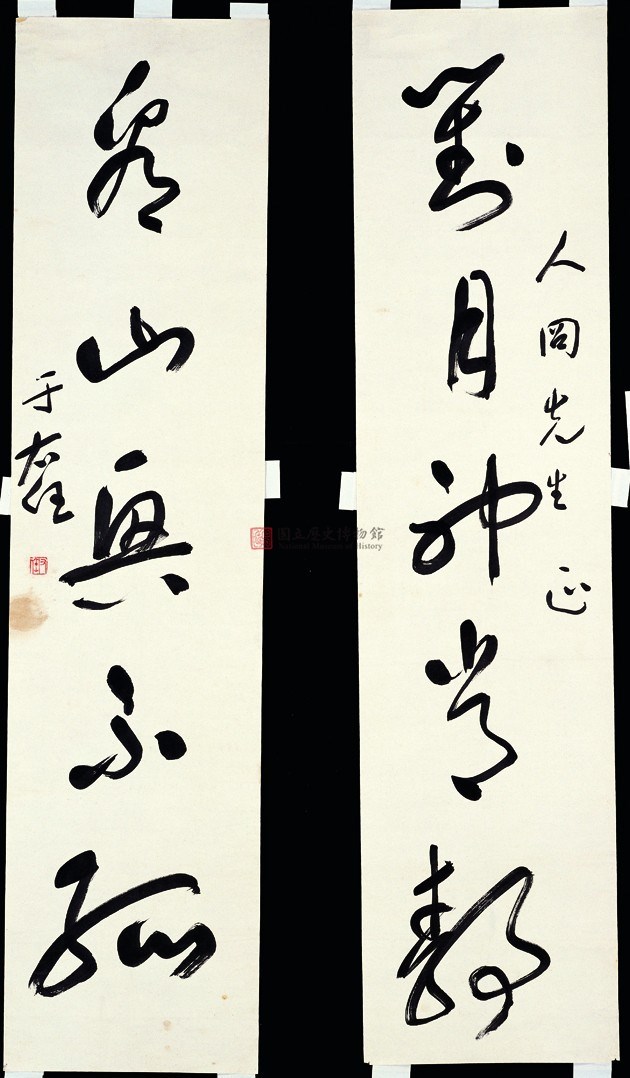 人岡先生 正
對月神常靜
看山興不孤
于右任
国立歷史博物館
National Museum of History